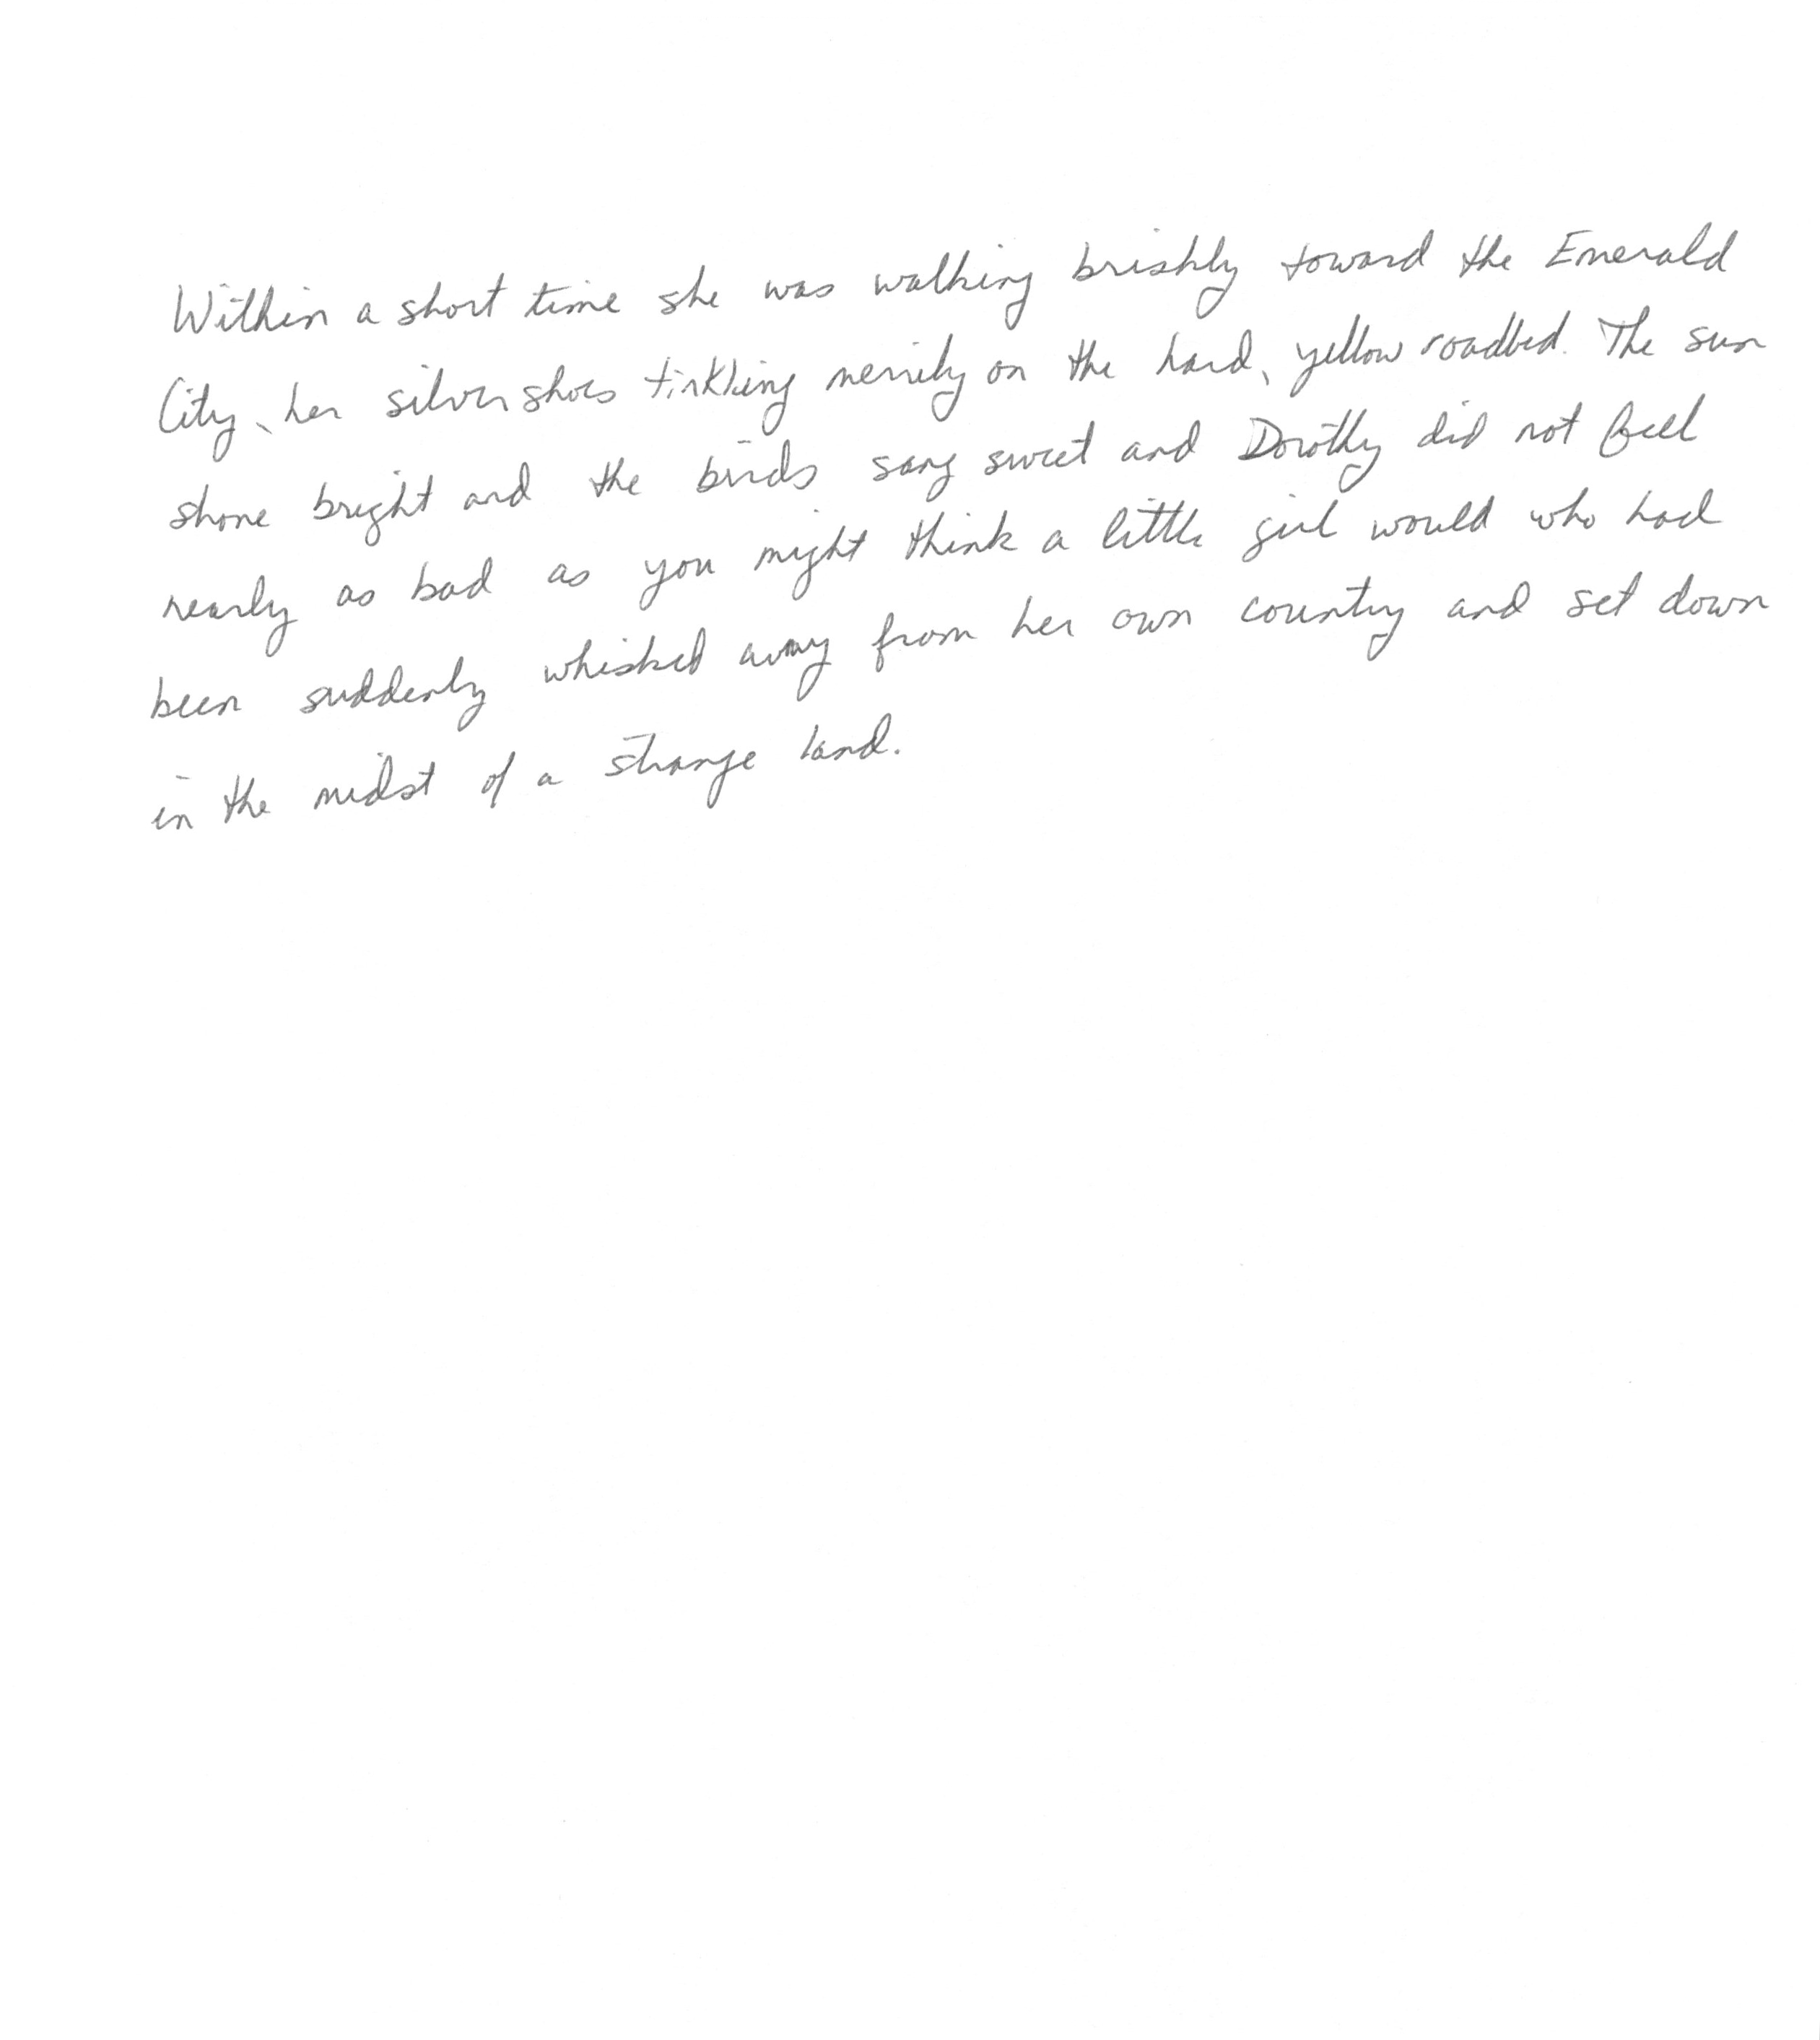 Within a short time she was walking briskly toward the Emerald
City, her silver shoes tinkling merrily on the hard, yellow roadbed. The sun
shone bright and the birds sang sweet and Dorothy did not feel
nearly as bad as you might think a little girl would who had
been suddenly whisked away from her own country and set down
in the midst of a strange land.